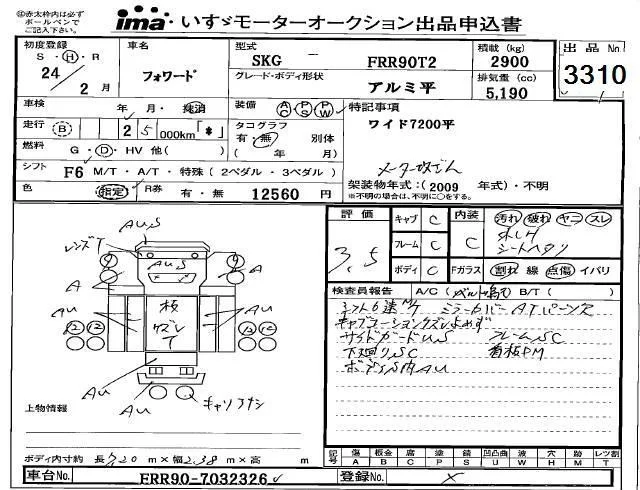 ㊟赤太枠内は必ず
ボールペンで
ご記入下さい。
ima・いすゞモーターオークション出品申込書
初度登録
S・H・R
24
2 月
車名
フォワード
型式
SKG - FRR90T2
グレード・ボディ形状
アルミ平
積載 (kg)
2900
排気量 (cc)
5,190
出品 No
3310
車検 年 月・抹消
装備 AC PS PW
特記事項
ワイド7200平
走行 (B) 25 000km「*」
タコグラフ
有・無 別体
( 年 月)
燃料 G・D・HV 他( )
シフト F6 M/T・A/T・特殊(2ペダル・3ペダル)
メーター改ざん
色 指定 R券 有・無 12560 円
架装物年式:(2009 年式)・不明
※不明の場合は、不明に○をする。
評価
3.5
キャブ C
フレーム C
ボディ C
内装 C
汚れ 破れ ヤニ スレ
シートヘタリ
Fガラス 割れ 線 点傷 イバリ
検査員報告 A/C( ) B/T( )
シフト6速M/T ミラーカバー
サイドガードUS フレームSC
下廻りSC 看板PM
ボディ内AU
AUS
レンズT
AUS
A
A
AU
AU
板
ズレ
T
12 12
12 12
AU
AU
上物情報
ボディ内寸約 長 720 m×幅 2.38 m×高 m
記号 傷A 板金B 腐C 塗P 錆S 凹凸曲U 波W 穴H 跡M レンズ割T
車台No. FRR90-7032326
登録No. ×